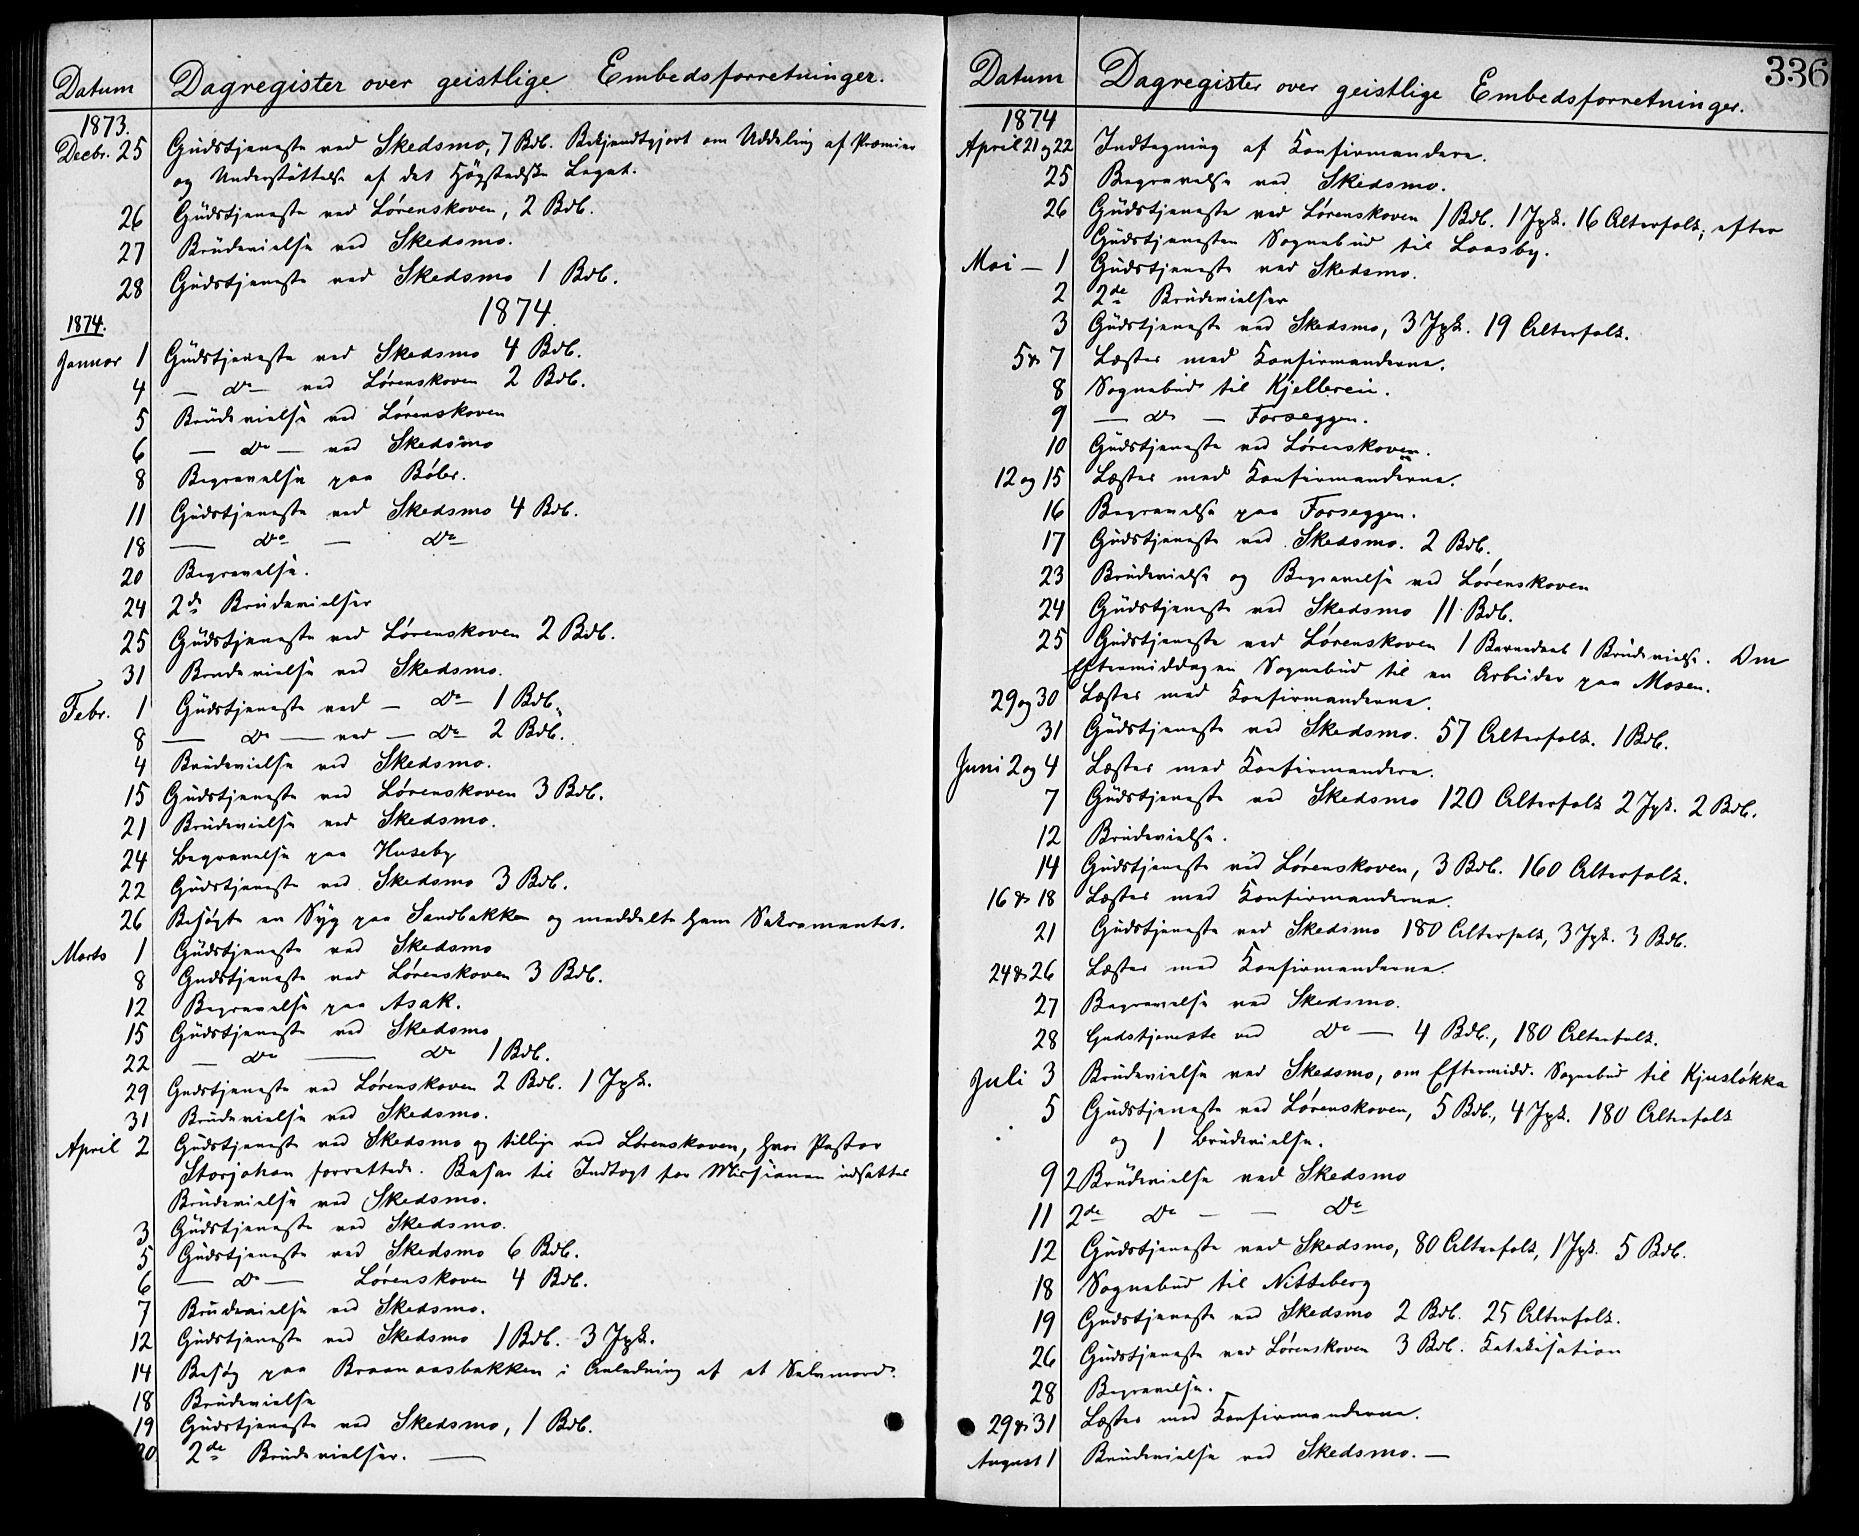 Datum Dagregister over geistlige Embedsforretninger.
1873.
Decbr. 25 Gudstjeneste ved Skedsmo, 7 Bdb. Bekjendtgjort om Uddeling af Præmier
og Understøttelse af det Høgstedske Legat.
26 Gudstjeneste ved Lørenskoven, 2 Bdb.
27 Brudevielse ved Skedsmo.
28 Gudstjeneste ved Skedsmo 1 Bdb.
1874
1874.
Januar 1 Gudstjeneste ved Skedsmo 4 Bdb.
4 — do — ved Lørenskoven 2 Bdb.
5 Brudevielse ved Lørenskoven
6 — do — ved Skedsmo
8 Begravelse paa Bøler.
11 Gudstjeneste ved Skedsmo 4 Bdb.
18 — do — do
20 Begravelse.
24 2de Brudevielser
25 Gudstjeneste ved Lørenskoven 2 Bdb.
31 Brudevielse ved Skedsmo.
Febr. 1 Gudstjeneste ved — do 1 Bdb.
8 — do — ved — do 2 Bdb.
4 Brudevielse ved Skedsmo.
15 Gudstjeneste ved Lørenskoven 3 Bdb.
21 Brudevielse ved Skedsmo.
24 Begravelse paa Huseby
22 Gudstjeneste ved Skedsmo 3 Bdb.
26 Besøgte en Syg paa Sandbakken og meddelte ham Sakramentet.
Marts 1 Gudstjeneste ved Skedsmo
8 Gudstjeneste ved Lørenskoven 3 Bdb.
12 Begravelse paa Asak.
15 Gudstjeneste ved Skedsmo
22 — do — do 1 Bdb.
29 Gudstjeneste ved Lørenskoven 2 Bdb. 1 Jgk.
31 Brudevielse ved Skedsmo.
April 2 Gudstjeneste ved Skedsmo og tillige ved Lørenskoven, hvor Pastor
Storjohan forrettede. Bøsser til Indtægt for Missionen udsattes
Brudevielse ved Skedsmo.
3 Gudstjeneste ved Skedsmo.
5 Gudstjeneste ved Skedsmo 6 Bdb.
6 — do — Lørenskoven 4 Bdb.
7 Brudevielse ved Skedsmo.
12 Gudstjeneste ved Skedsmo 1 Bdb. 3 Jgk.
14 Besøg paa Braanaasbakken i Anledning af et Selvmord.
18 Brudevielse
19 Gudstjeneste ved Skedsmo, 1 Bdb.
20 2de Brudevielser. —
336
Datum Dagregister over geistlige Embedsforretninger.
1874
April 21 og 22 Indtegning af Konfirmandere.
25 Begravelse ved Skedsmo.
26 Gudstjeneste ved Lørenskoven 1 Bdb. 1 Jgk. 16 Alterfolk; efter
Gudstjenesten Sognebud til Losby.
Mai — 1 Gudstjeneste ved Skedsmo.
2 2de Brudevielser
3 Gudstjeneste ved Skedsmo, 3 Jgk. 19 Alterfolk.
5 & 7 Læstes med Konfirmanderne.
8 Sognebud til Kjellerein.
9 — do — Forseggen.
10 Gudstjeneste ved Lørenskoven.
12 og 15 Læstes med Konfirmanderne.
16 Begravelse paa Forseggen.
17 Gudstjeneste ved Skedsmo. 2 Bdb.
23 Brudevielse og Begravelse ved Lørenskoven
24 Gudstjeneste ved Skedsmo 11 Bdb.
25 Gudstjeneste ved Lørenskoven 1 Barnedaab 1 Brudevielse. Om
Eftermiddagen Sognebud til en Arbeider paa Mosen.
29 og 30 Læstes med Konfirmanderne.
31 Gudstjeneste ved Skedsmo. 57 Alterfolk. 1 Bdb.
Juni 2 og 4 Læstes med Konfirmandere.
7 Gudstjeneste ved Skedsmo 120 Alterfolk 2 Jgk. 2 Bdb.
12 Brudevielse.
14 Gudstjeneste ved Lørenskoven, 3 Bdb. 160 Alterfolk.
16 & 18 Læstes med Konfirmanderne.
21 Gudstjeneste ved Skedsmo 180 Alterfolk, 3 Jgk. 3 Bdb.
24 & 26 Læstes med Konfirmanderne.
27 Begravelse ved Skedsmo.
28 Gudstjeneste ved do — 4 Bdb., 180 Alterfolk.
Juli 3 Brudevielse ved Skedsmo, om Eftermidd. Sognebud til Kjusløkka
5 Gudstjeneste ved Lørenskoven, 5 Bdb., 4 Jgk. 180 Alterfolk
og 1 Brudevielse.
9 2 Brudevielse ved Skedsmo
11 2de do — — do
12 Gudstjeneste ved Skedsmo, 80 Alterfolk, 1 Jgk. 5 Bdb.
18 Sognebud til Nitteberg
19 Gudstjeneste ved Skedsmo 2 Bdb. 25 Alterfolk.
26 Gudstjeneste ved Lørenskoven 3 Bdb. Katekisation
28 Begravelse.
29 & 31 Læstes med Konfirmanderne.
August 1 Brudevielse ved Skedsmo. —